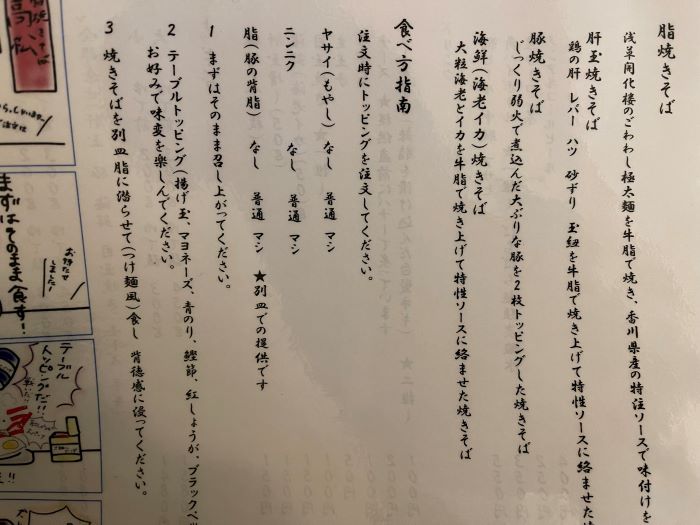 脂焼きそば
浅草開化楼のごわわし極太麺を牛脂で焼き、香川県産の特注ソースで味付けを
肝玉焼きそば
鶏の肝 レバー ハツ 砂ずり 玉紐を牛脂で焼き上げて特性ソースに絡ませた
豚焼きそば
じっくり弱火で煮込んだ大ぶりな豚を2枚トッピングした焼きそば
海鮮(海老イカ)焼きそば
大粒海老とイカを牛脂で焼き上げて特性ソースに絡ませた焼きそば
食べ方指南
注文時にトッピングを注文してください。
ヤサイ(もやし) なし 普通 マシ
ニンニク なし 普通 マシ
脂(豚の背脂) なし 普通 マシ ★別皿での提供です
1 まずはそのまま召し上がってください。
2 テーブルトッピング(揚げ玉、マヨネーズ、青のり、鰹節、紅しょうが、ブラックペッ
お好みで味変を楽しんでください。
3 焼きそばを別皿脂に潜らせて(つけ麺風)食し 背徳感に浸ってください。
お待たせ
しました!
まずはそのまま食す!
テーブル
トッピングだ!!